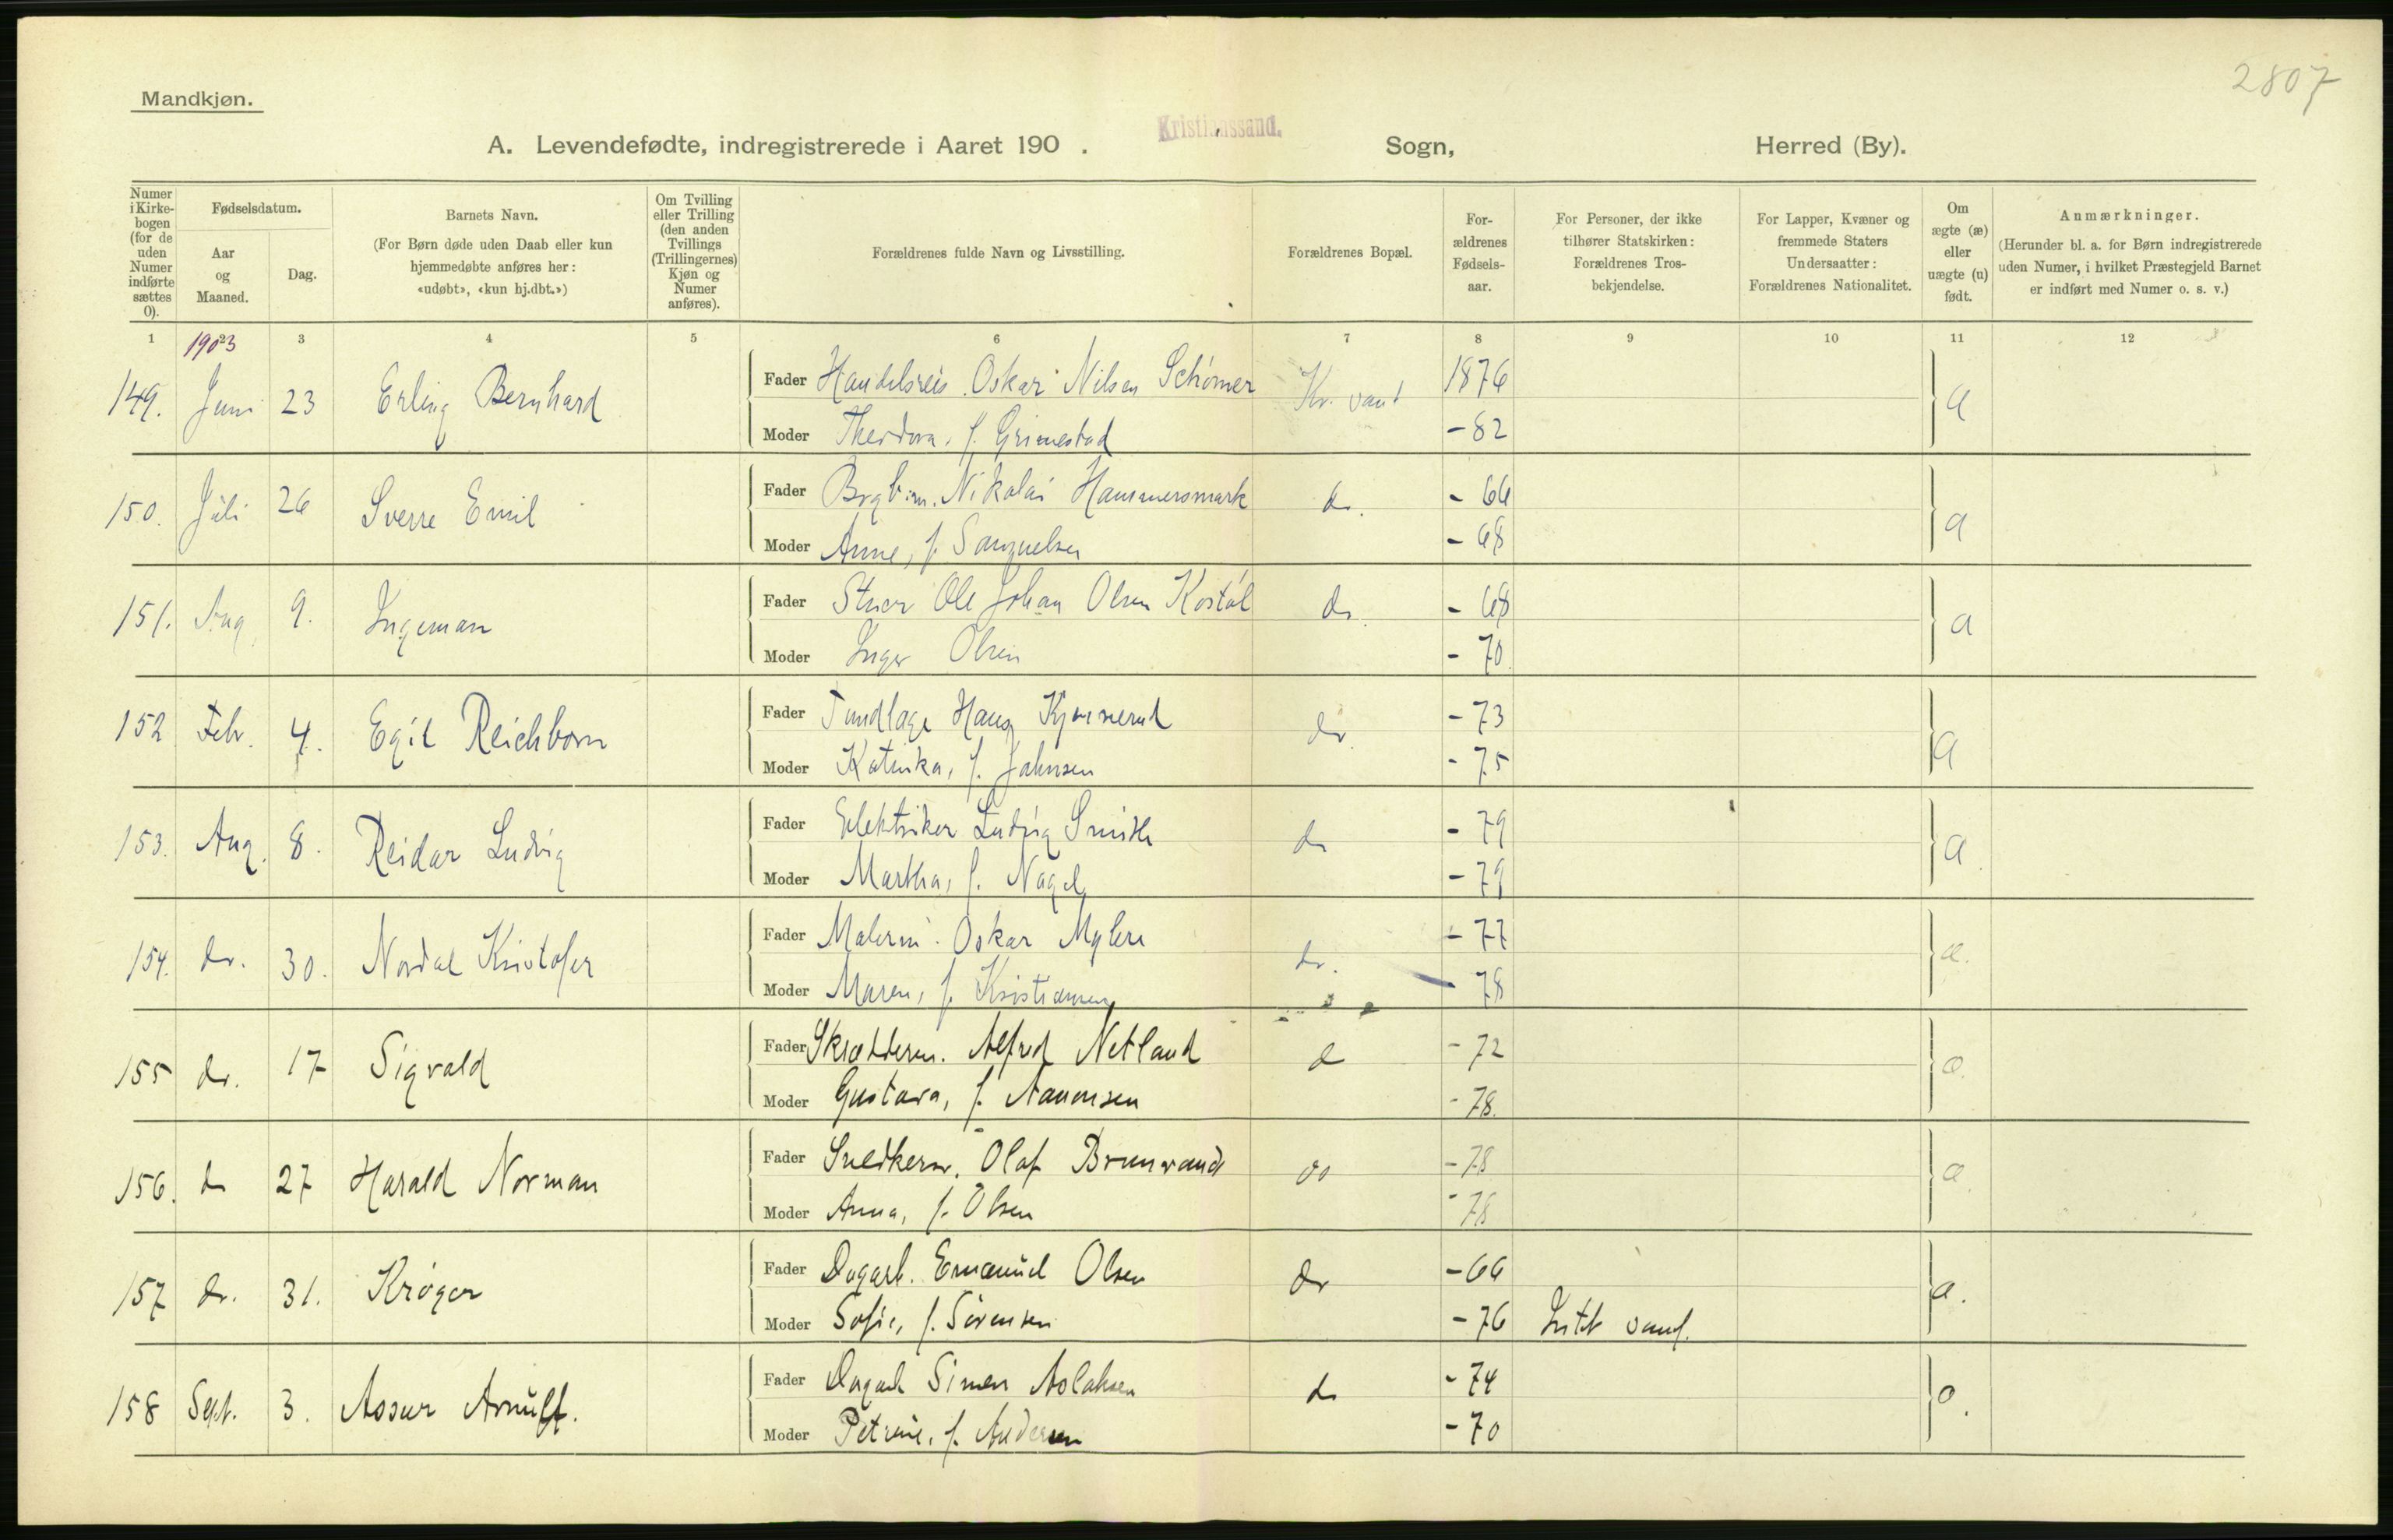 2807
Mandkjøn.
Kristianssand.
A. Levendefødte, indregistrerede i Aaret 190 . Sogn, Herred (By).
Numer i Kirke-bogen (for de uden Numer indførte sættes 0).
Fødselsdatum.
Aar og Maaned.
Dag.
Barnets Navn.
(For Børn døde uden Daab eller kun
hjemmedøbte anføres her:
«udøbt», «kun hj.dbt.»)
Om Tvilling
eller Trilling
(den anden
Tvillings
(Trillingernes)
Kjøn og
Numer
anføres).
Forældrenes fulde Navn og Livsstilling.
Forældrenes Bopæl.
For-
ældrenes
Fødsels-
aar.
For Personer, der ikke
tilhører Statskirken:
Forældrenes Tros-
bekjendelse.
For Lapper, Kvæner og
fremmede Staters
Undersaatter:
Forældrenes Nationalitet.
Om
ægte (æ)
eller
uægte (u)
født.
Anmærkninger.
(Herunder bl. a. for Børn indregistrerede
uden Numer, i hvilket Præstegjeld Barnet
er indført med Numer o. s. v.)
1 2 3 4 5 6 7 8 9 10 11 12
1903
149. Juni 23 Erling Bernhard Fader Handelsreis. Oskar Nilsen Schömer Kr. sand 1876 a
Moder Theodora, f. Grimestad - 82
150. Juli 26 Sverre Emil Fader Nikolai Hammersmark do. - 66 a
Moder Anne, f. Samuelsen - 68
151. Aug. 9. Ingeman Fader Stuer Ole Johan Olsen do. - 68 a
Moder Inger Olsen - 70.
152 Febr. 4. Egil Reichborn Fader Tandlæge Hans Kjønnerud do. - 73 a
Moder Katinka, f. Johnsen - 75
153. Aug. 8. Reidar Ludvig Fader Elektriker Ludvig Smith do - 79 a.
Moder Martha, f. Nagel - 79
154. do. 30. Nordal Kristofer Fader Malerm. Oskar Myhre do. - 77 æ.
Moder Maren, f. Kristiansen - 78
155 do. 17 Sigvald Fader Skrædderm. Alfred Netland do - 72 a.
Moder Gustava, f. Aanonsen - 78.
156. do 27 Harald Norman Fader Snedkersv. Olaf Brunvand do - 78 a.
Moder Anna, f. Olsen - 78
157 do. 31. Krøger Fader Dagarb. Emanuel Olsen do - 66 a.
Moder Sofie, f. Sörensen - 76 Luth samf.
158 Sept. 3. Assur Arnulf. Fader Dagarb Simen Aslaksen do - 74 a.
Moder Petrine, f. Andersen - 70